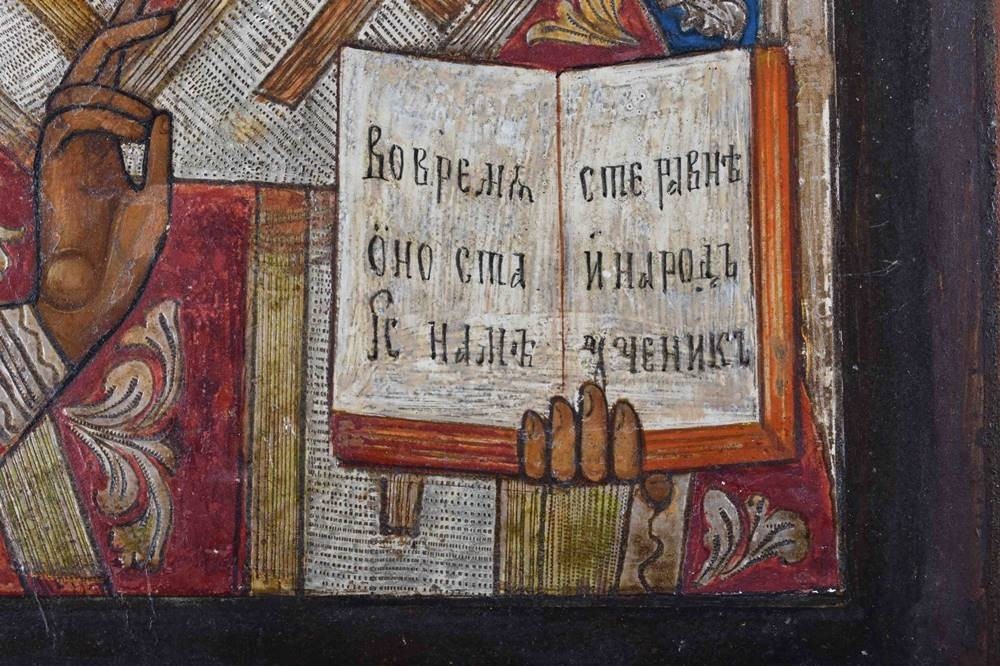 Во врємѧ
ӧно ста
Іс намѣ
стє равнѣ
и҆ народъ
ꙋчєникъ